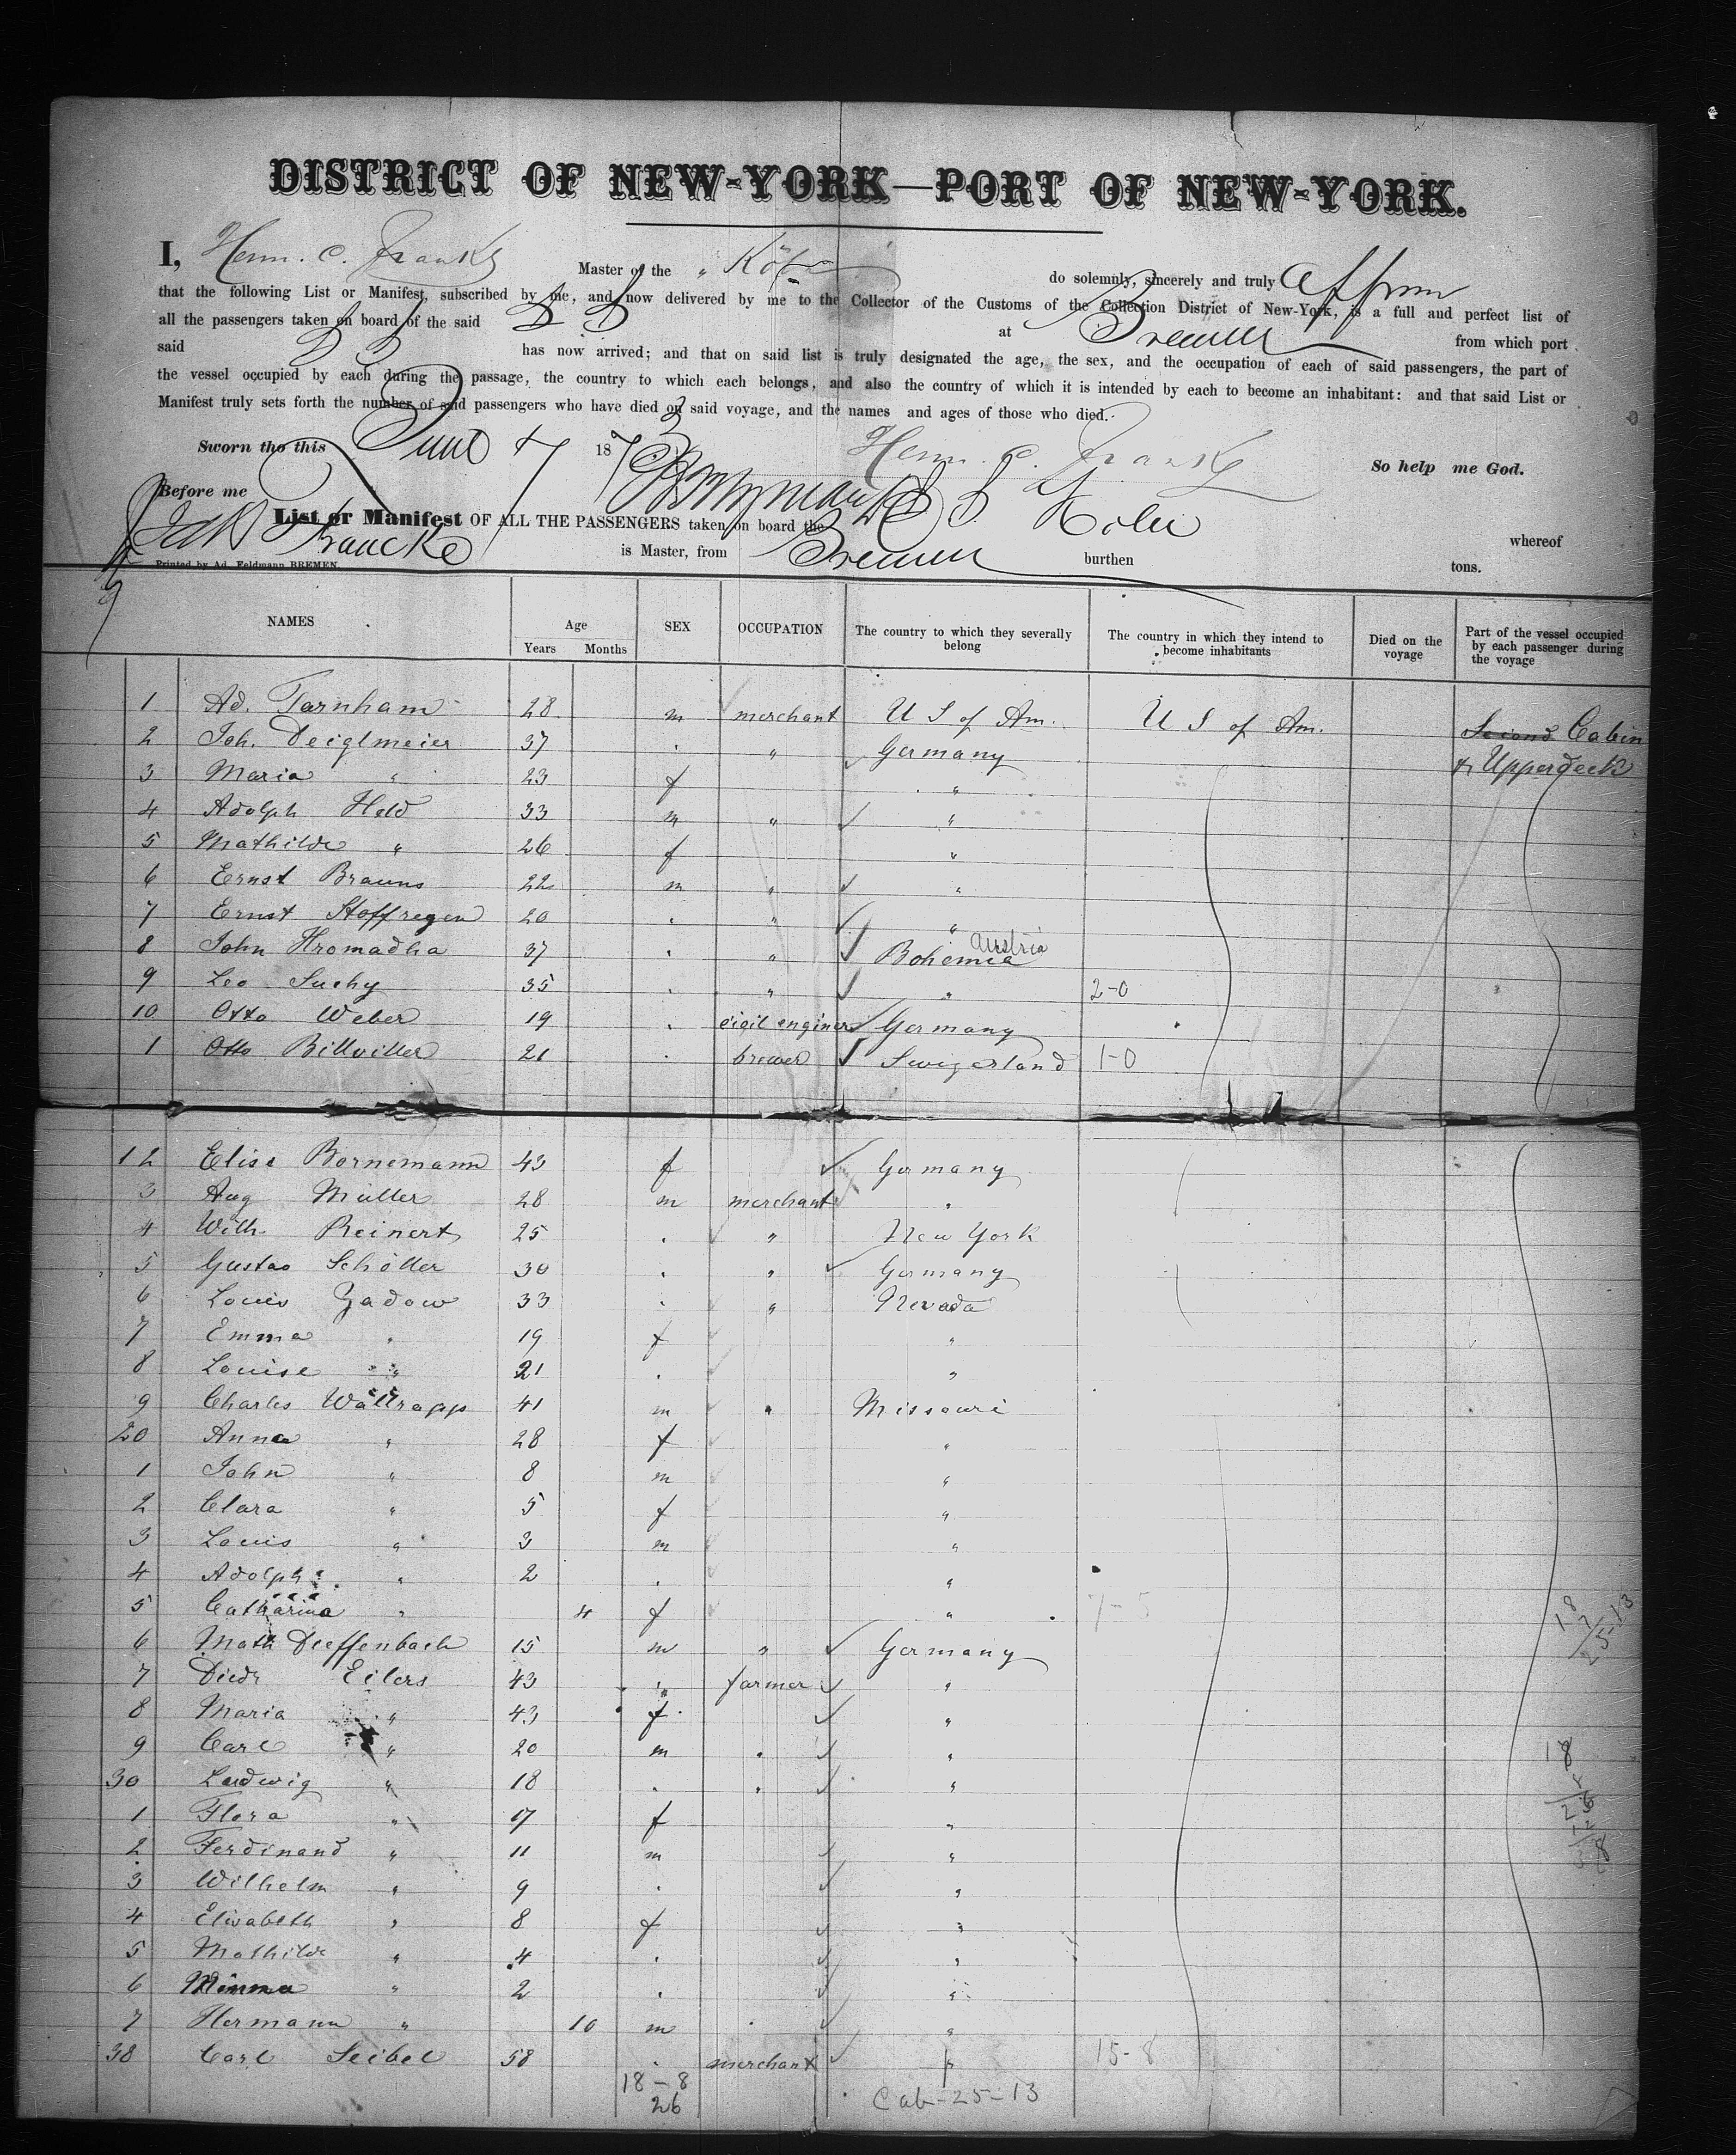 DISTRICT OF NEW-YORK—PORT OF NEW-YORK.
I, Herm. C. Franke Master of the „Köln" do solemnly, sincerely and truly affirm
that the following List or Manifest, subscribed by me, and now delivered by me to the Collector of the Customs of the Collection District of New-York, is a full and perfect list of
all the passengers taken on board of the said SS at Bremen from which port
said SS has now arrived; and that on said list is truly designated the age, the sex, and the occupation of each of said passengers, the part of
the vessel occupied by each during the passage, the country to which each belongs, and also the country of which it is intended by each to become an inhabitant: and that said List or
Manifest truly sets forth the number of said passengers who have died on said voyage, and the names and ages of those who died.
Sworn tho this June 4 1873 Herm. C. Franke So help me God.
Before me
List or Manifest OF ALL THE PASSENGERS taken on board the SS Koln whereof
Francke is Master, from Bremen burthen tons.
Printed by Ad. Feldmann BREMEN
NAMES Age Years Months SEX OCCUPATION The country to which they severally belong The country in which they intend to become inhabitants Died on the voyage Part of the vessel occupied by each passenger during the voyage
1 Ad. Tarnham 28 m merchant U S of Am. U S of Am. Second Cabin
2 Joh. Deiglmeier 37 . " Germany & Upperdeck
3 Maria " 23 f "
4 Adolph Held 33 m " "
5 Mathilde " 26 f "
6 Ernst Brauns 22 m " "
7 Ernst Stoffregen 20 . " "
8 John Hromadka 37 . " Bohemia Austria
9 Leo Suchy 35 . " " 2-0
10 Otto Weber 19 . civil enginer Germany
1 Otto Billviller 21 . brewer Swizerland 1-0
12 Elise Bornemann 43 f Germany
3 Aug Müller 28 m merchant "
4 Wilh. Reinert 25 . " New York
5 Gustav Schöller 30 . " Germany
6 Louis Zadow 33 . " Nevada
7 Emma " 19 f "
8 Louise " 21 . "
9 Charles Wallrapp 41 m " Missouri
20 Anna " 28 f "
1 John " 8 m "
2 Clara " 5 f "
3 Louis " 3 m "
4 Adolph " 2 . "
5 Catharina " 4 f " 7-5
6 Math Dieffenbach 15 m " Germany
7 Diedr Eilers 43 " farmer "
8 Maria " 43 f "
9 Carl " 20 m . "
30 Ludwig " 18 . . "
1 Flora " 17 f "
2 Ferdinand " 11 m "
3 Wilhelm " 9 . "
4 Elisabeth " 8 f "
5 Mathilde " 4 . "
6 Minna " 2 . "
7 Hermann " 10 m "
38 Carl Seibel 58 . merchant " 15-8
18-8
26
Cab-25-13